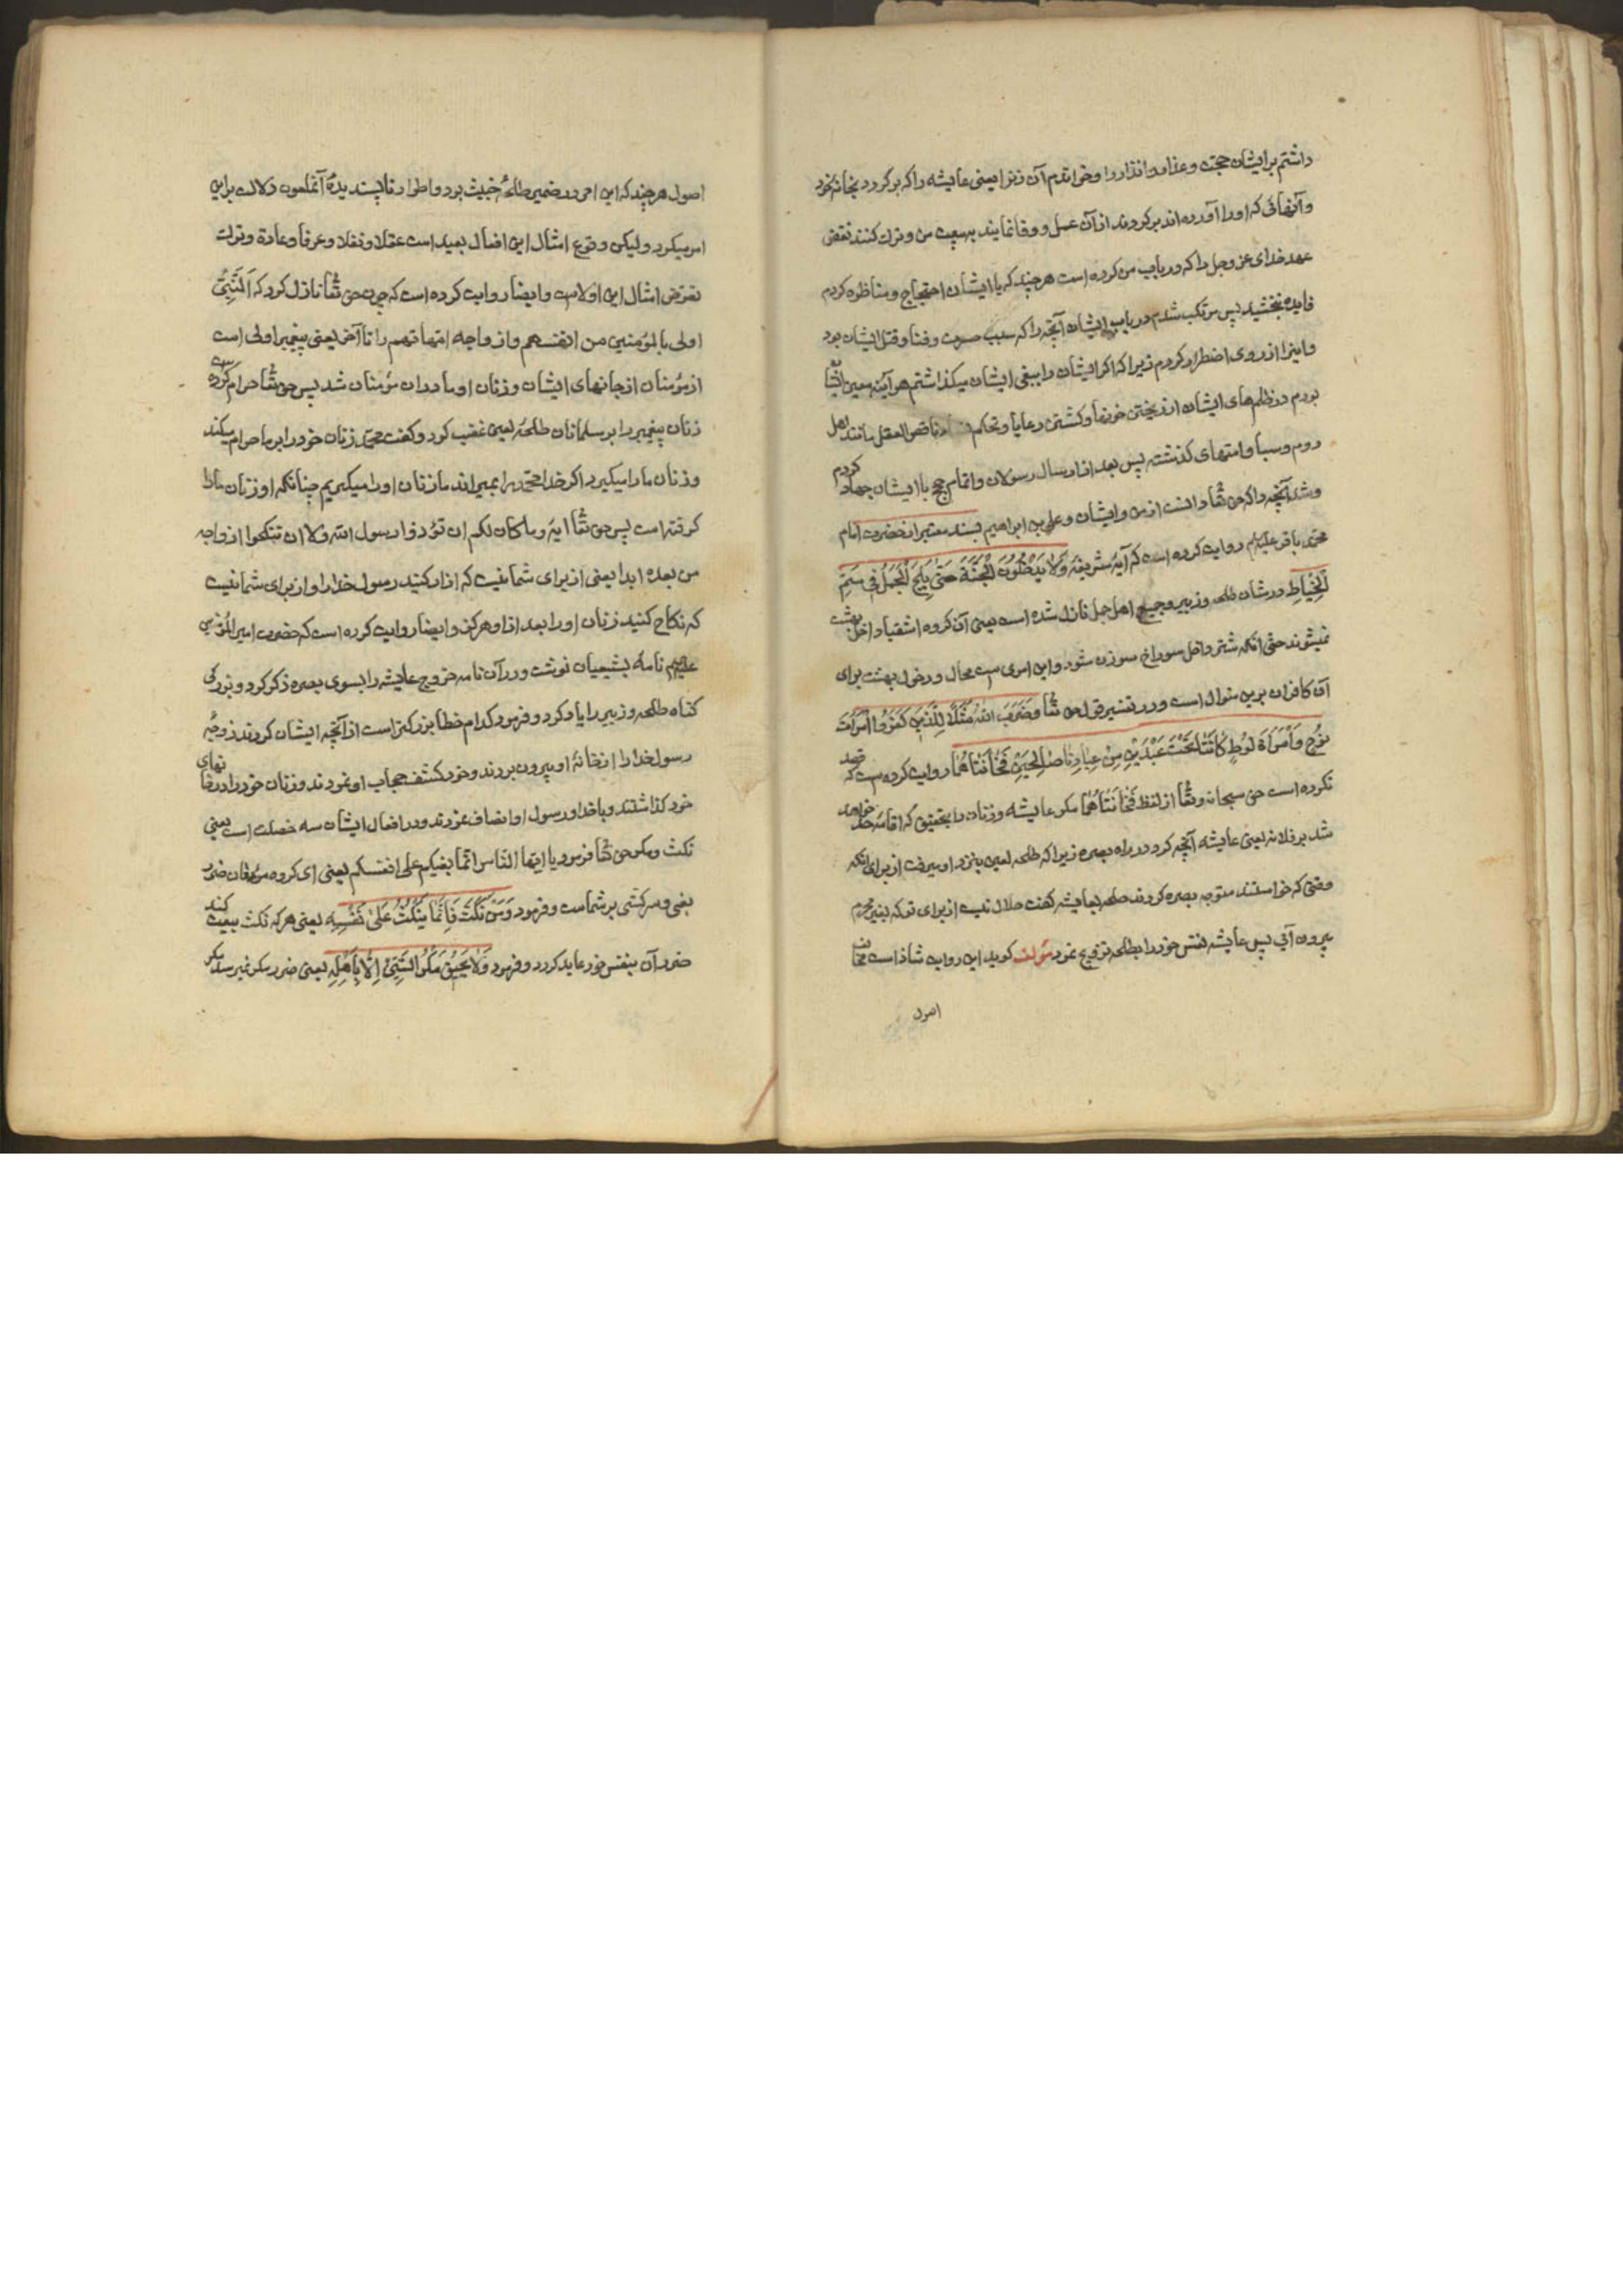 داشتم بر ایشان حجت و عذار و انذار را و خواندم آن زنرا یعنی عایشه را که برگردد بخانه خود
و آنهائی که او را آورده اند برگردند از آن عمل و وفا نمایند به بیعت من و ترک کنند نقض
عهد خدای عز وجل را که در باب من کرده است هر چند که با ایشان احتجاج و مناظره کردم
فایده نبخشید پس مرتکب شدم در باب ایشان آنچه را که سبب موت و فنا و قتل ایشان بود
و اینرا از روی اضطرار کردم زیرا که اگر ایشان را ببغی ایشان میگذاشتم هر آینه معین ایشا
بودم در ظلم‌های ایشان از ریختن خونها و کشتن رعایا و تحکم ناقص العقل مانند اهل
روم و سبا و امتهای گذشته پس بعد از ارسال رسولان و اتمام حجج با ایشان جهاد کردم
و شد آنچه را که حق تعا دانست از من و ایشان و علی بن ابراهیم بسند معتبر از حضرت امام
محمد باقر علیه‌م روایت کرده است که آیه شریفه وَلَا يَدْخُلُونَ الْجَنَّةَ حَتّىٰ يَلِجَ الْجَمَلُ فِي سَمِّ
الْخِيَاطِ در شان طلحه و زبیر و جمیع اهل جمل نازل شده است یعنی آن گروه اشقیا داخل بهشت
نمیشوند حتی انکه شتر داخل سوراخ سوزن شود و این امری است محال و دخول بهشت برای
آن کافران برین منوال است و در تفسیر قول حق تعا وضَرَبَ اللهُ مَثَلًا لِلَّذِينَ كَفَرُوا امْرَأَتَ
نُوحٍ وَامْرَأَةَ لُوطٍ كَانَتَا تَحْتَ عَبْدَيْنِ مِنْ عِبَادِنَا صَالِحَيْنِ فَخَانَتَاهُمَا روایت کرده است که قصد
نکرده است حق سبحانه و تعا از لفظ فَخَانَتَاهُمَا مکر عایشه و زنان را بتحقیق که اقامه حد خواهد
شد بر فلانه یعنی عایشه آنچه کرد در راه بصره زیرا که طلحه لعین بنزد او میرفت از برای انکه
وقتی که خواستند متوجه بصره کردند طلحه بعایشه گفت حلال نیست از برای تو که بغیر محرم
بیرون آئی پس عایشه نفس خود را بطلحه تزویج نمود مولف گوید این روایت شاذ است مخالف
اصول
اصول هر چند که این امر در ضمیر طلحه خبیث بود و اطوار ناپسندیده آنملعون دلالت براین
امر میکرد و لیکن وقوع امثال این افعال بعید است عقلا و نقلا و عرفا و عادة و ترک
تعرض امثال این اولاست و ایضا روایت کرده است که چون حق تعا نازل کرد که اَلنَّبِيُّ
اولی بالمؤمنین من انفسهم و ازواجه امهاتهم را تا آخر یعنی پیغمبر اولی است
از مؤمنان از جانهای ایشان و زنان او مادران مؤمنان شد پس حق تعا حرام کرده است
زنان پیغمبر را بر مسلمانان طلحه لعین غضب کرد و گفت محمد زنان خود را بر ما حرام میکند
و زنان ما را میگیرد اگر خدا محمد را بمیراند ما زنان او را میگیریم چنانکه او زنان ما را
گرفته است پس حق تعا ایه و ما کان لکم ان تؤذوا رسول الله ولا ان تنکحوا ازواجه
من بعده ابدا یعنی از برای شما نیست که ازار کنید رسول خدا را و از برای شما نیست
که نکاح کنید زنان او را بعد از او هرگز و ایضا روایت کرده است که حضرت امیرالمؤمنین
علیه‌م نامه بشیعیان نوشت و در آن نامه خروج عایشه را بسوی بصره ذکر کرد و بزرگی
گناه طلحه و زبیر را یاد کرد و فرمود کدام خطا بزرگتر است از آنچه ایشان کردند زوجه
رسول خدا را از خانه او بیرون بردند و خود کشف حجاب او نمودند و زنان خود را در خانهای
خود گذاشتند و با خدا و رسول او انصاف نمودند و در افعال ایشان سه خصلت است بغی
نکث و مکر حق تعا فرمود یا ایها الناس انما بغیکم علی انفسکم یعنی ای گروه مردمان ضرر
بغی و سرکشی بر شماست و فرمود وَمَنْ نَكَثَ فَإِنَّمَا يَنْكُثُ عَلىٰ نَفْسِهِ یعنی هر که نکث بیعت کند
ضرر آن بنفس خود عاید گردد و فرمود وَلَا يَحِيقُ مَكْرُ السَّيِّئُ إِلَّا بِأَهْلِهِ یعنی ضرر مکر نمیرسد مکر